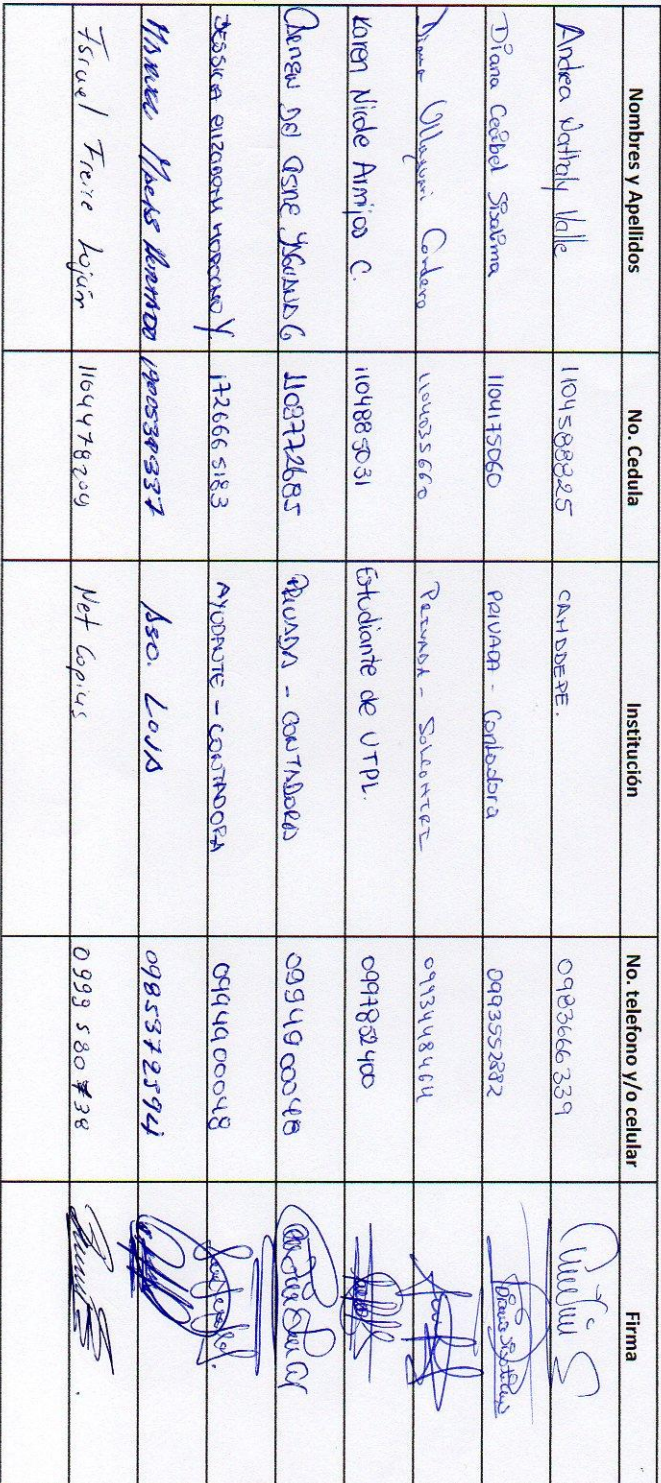 Nombres y Apellidos No. Cedula Institución No. telefono y/o celular Firma
Andrea Nathaly Valle 1104588825 CAMDDEPE. 0983666339
Diana Ceibel Sisalima 1104175060 PRIVADA - Contadora 0993552882
Diana Cordero 1104035660 PRIVADA - 0993448464
Karen Nicole Armijos C. 1104885031 Estudiante de UTPL. 0997852400
Carmen Del Cisne G 1103772685 PRIVADA - CONTADORA 0994900048
JESSICA ELIZABETH MOROCHO Y 1726665183 AYUDANTE - CONTADORA 0994900048
Aso. LOJA 0985372594
Israel Freire Loján 1104478204 Net Copias 0999580738